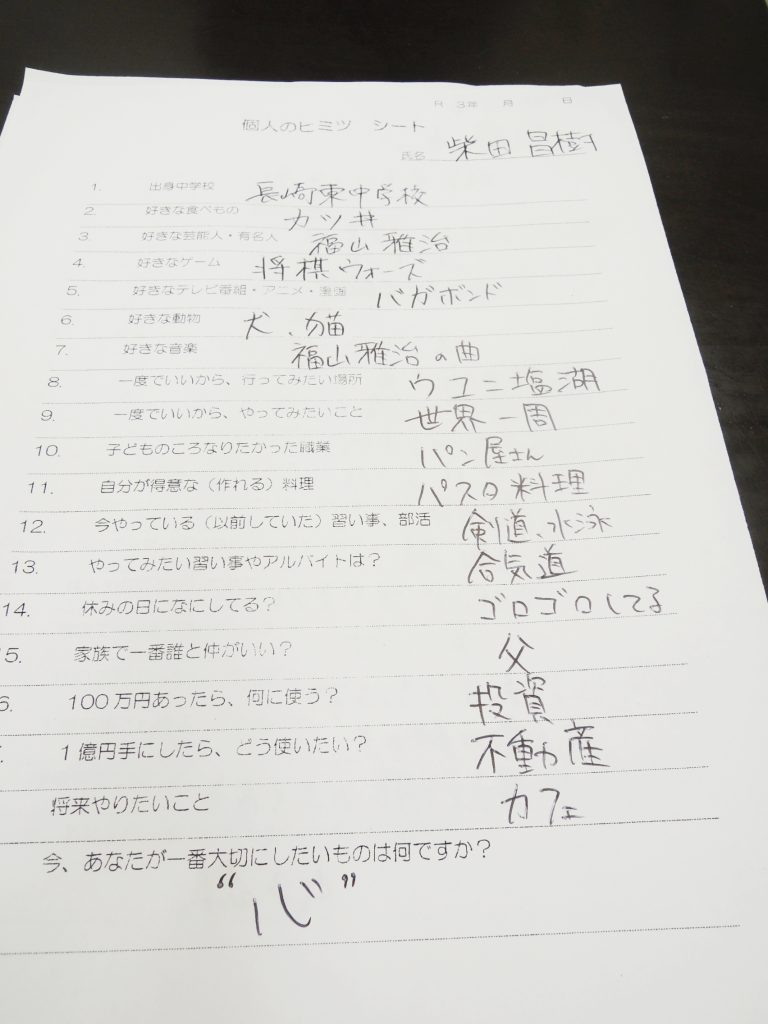 R 3年 月 日
個人のヒミツ シート
氏名 柴田 昌樹
1. 出身中学校 長崎東中学校
2. 好きな食べもの カツ丼
3. 好きな芸能人・有名人 福山雅治
4. 好きなゲーム 将棋ウォーズ
5. 好きなテレビ番組・アニメ・漫画 バガボンド
6. 好きな動物 犬、猫
7. 好きな音楽 福山雅治の曲
8. 一度でいいから、行ってみたい場所 ウユニ塩湖
9. 一度でいいから、やってみたいこと 世界一周
10. 子どものころなりたかった職業 パン屋さん
11. 自分が得意な(作れる)料理 パスタ料理
12. 今やっている(以前していた)習い事、部活 剣道、水泳
13. やってみたい習い事やアルバイトは? 合気道
14. 休みの日になにしてる? ゴロゴロしてる
5. 家族で一番誰と仲がいい? 父
6. 100万円あったら、何に使う? 投資
1億円手にしたら、どう使いたい? 不動産
将来やりたいこと カフェ
今、あなたが一番大切にしたいものは何ですか?
“心”